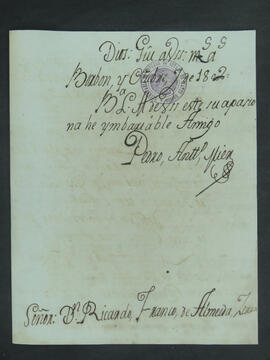 Dios. Gũe a Vs. ms. as.
Borbon, y Octubre 7 de 1802.
B. L. M. de Vm este su apasio
na he ymbariable Amigo
Pedro, Antto. Mier
Señor: Dn. Ricardo, Franco, de Almeida,